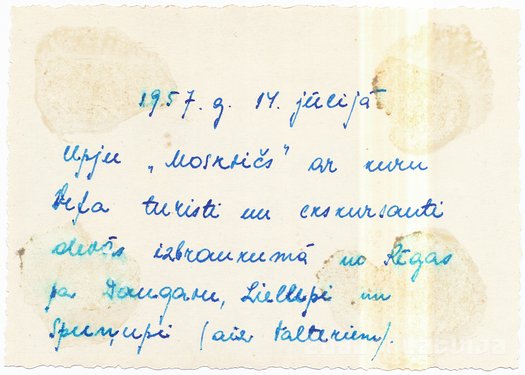 1957. g. 14. jūlijā
Upju „Moskvičs" ar kuru
Vefa turisti un ekskursanti
devās izbraukumā no Rīgas
pa Daugavu, Lielupi un
Spuņupi (aiz Valteriem).